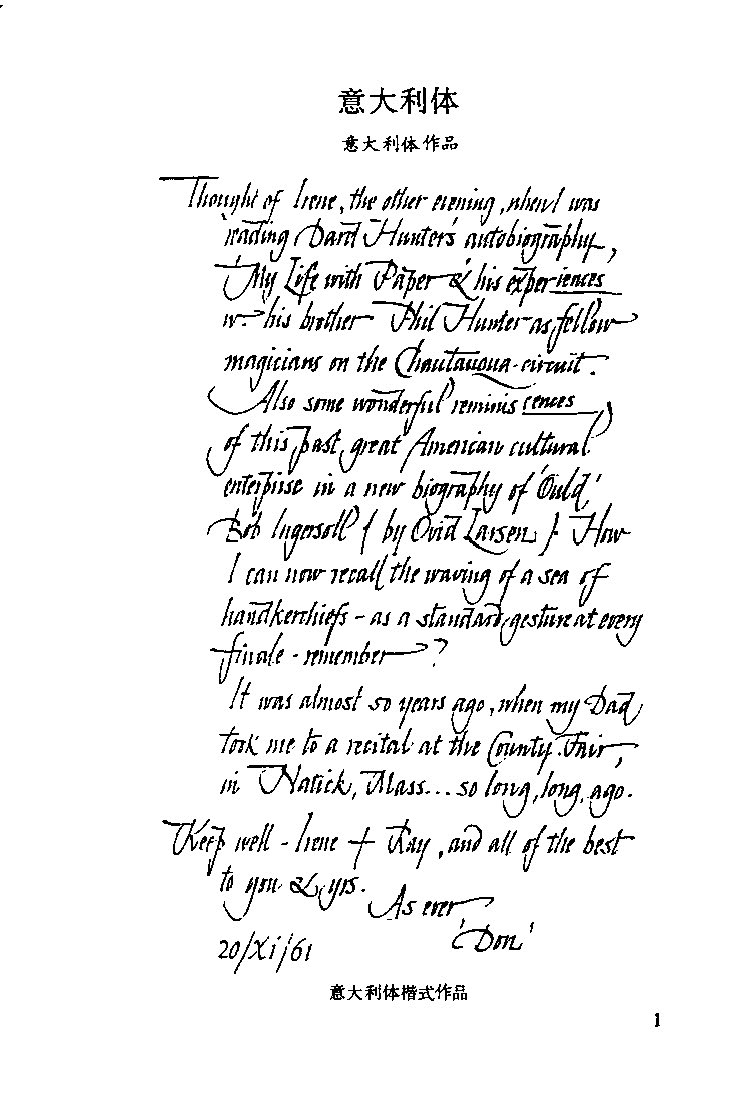 意大利体
意大利体作品
Thought of Irene, the other evening, when I was
reading Dard Hunter's autobiography,
My Life with Paper & his experiences
w. his brother Phil Hunter as fellow
magicians on the Chautauqua circuit.
Also some wonderful reminiscences
of this past, great American cultural
enterprise in a new biography of 'Ould'
Bob Ingersoll { by Ovid Larsen } How
I can now recall the waving of a sea of
handkerchiefs - as a standard gesture at every
finale - remember?
It was almost 50 years ago, when my Dad
took me to a recital at the County Fair,
in Natick, Mass... so long, long, ago.
Keep well - Irene + Ray, and all of the best
to you & yrs.
As ever
'Don'
20/Xi/61
意大利体楷式作品
1